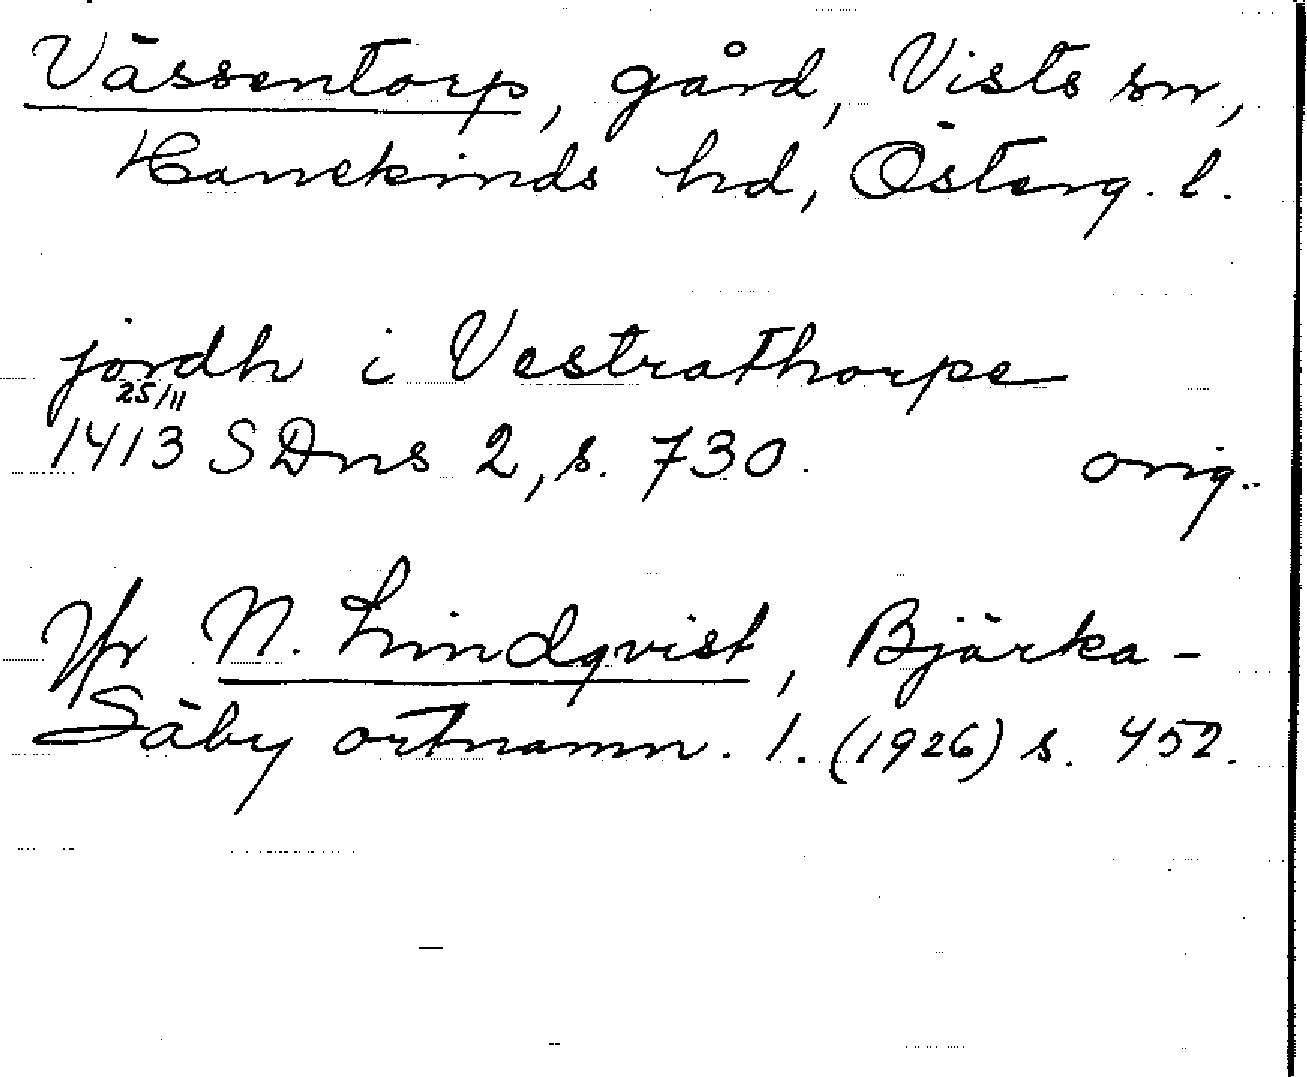 Vässentorp, gård, Vists sn,
Hanekinds hd, Österg. l.
jordh i Vestrathorpe
25/11
1413 SDns 2, s. 730. orig.
Jfr N. Lindqvist, Bjärka-
Säby ortnamn. 1. (1926) s. 452.